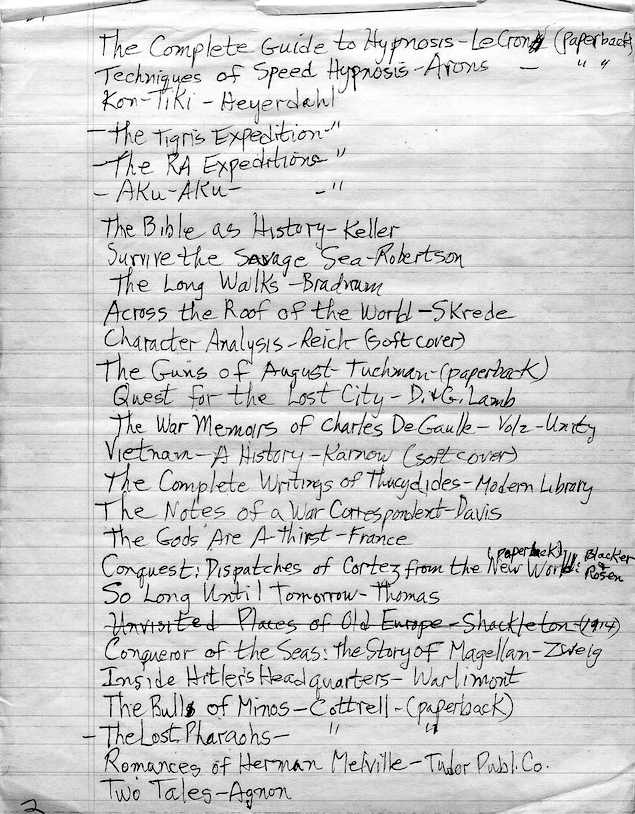 The Complete Guide to Hypnosis-LeCron (paperback)
Techniques of Speed Hypnosis-Arons — " "
Kon-Tiki - Heyerdahl
-The Tigris Expedition-"
-The RA Expeditions "
- AKu-AKu- -"
The Bible as History-Keller
Survive the Savage Sea-Robertson
The Long Walks -Bradnum
Across the Roof of the World-Skrede
Character Analysis-Reich (soft cover)
The Guns of August-Tuchman-(paperback)
Quest for the Lost City-D.&G. Lamb
The War Memoirs of Charles DeGaulle-Vol2-Unity
Vietnam-A History-Karnow (soft cover)
The Complete Writings of Thucydides-Modern Library
The Notes of a War Correspondent-Davis
The Gods Are A-thirst-France
Conquest: Dispatches of Cortez from the New World: (paperback) Blacker & Rosen
So Long Until Tomorrow-Thomas
Unvisited Places of Old Europe-Shackleton-(1914)
Conqueror of the Seas: the Story of Magellan-Zweig
Inside Hitler's Headquarters-Warlimont
The Bulls of Minos-Cottrell-(paperback)
-The Lost Pharaohs- " "
Romances of Herman Melville-Tudor Publ. Co.
Two Tales-Agnon
2